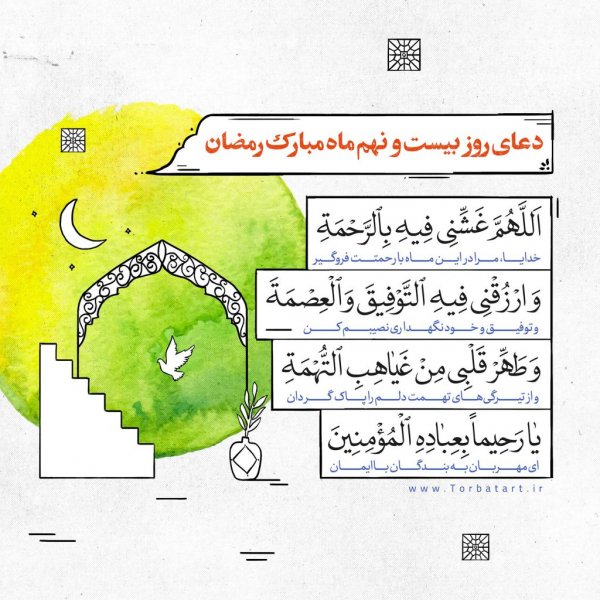 دعای روز بیست و نهم ماه مبارک رمضان
اَللّٰهُمَّ غَشِّنِی فِیهِ بِالرَّحْمَةِ
خدایا، مرا در این ماه با رحمتت فروگیر
وَ ارْزُقْنِی فِیهِ التَّوْفِیقَ وَالْعِصْمَةَ
و توفیق و خودنگهداری نصیبم کن
وَ طَهِّرْ قَلْبِی مِنْ غَیٰاهِبِ التُّهْمَةِ
و از تیرگی‌های تهمت دلم را پاک گردان
یٰا رَحِیماً بِعِبٰادِهِ الْمُؤْمِنِینَ
ای مهربان به بندگان باایمان
www.Torbatart.ir